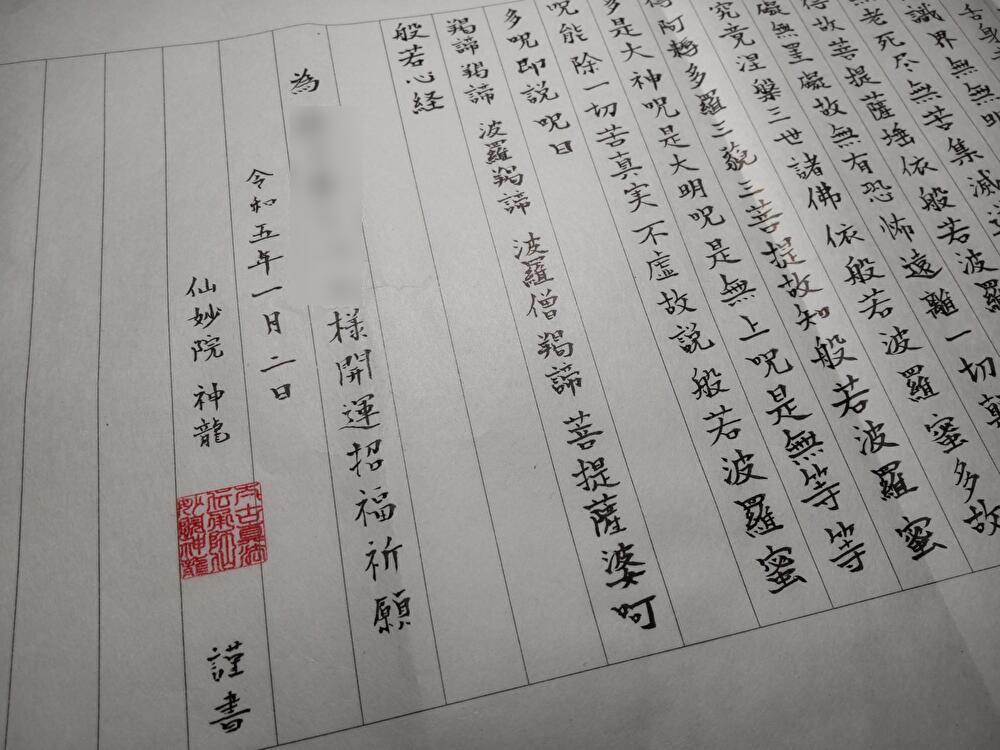 舌身
識界無無明
老死尽無苦集滅道
得故菩提薩埵依般若波羅
處無罣處故無有恐怖遠離一切
究竟涅槃三世諸佛依般若波羅蜜多故
得阿耨多羅三藐三菩提故知般若波羅蜜
多是大神呪是大明呪是無上呪是無等等
呪能除一切苦真実不虚故説般若波羅蜜
多呪即説呪曰
羯諦羯諦 波羅羯諦 波羅僧羯諦 菩提薩婆呵
般若心経
為 様開運招福祈願
令和五年一月二日
仙妙院 神龍 謹書